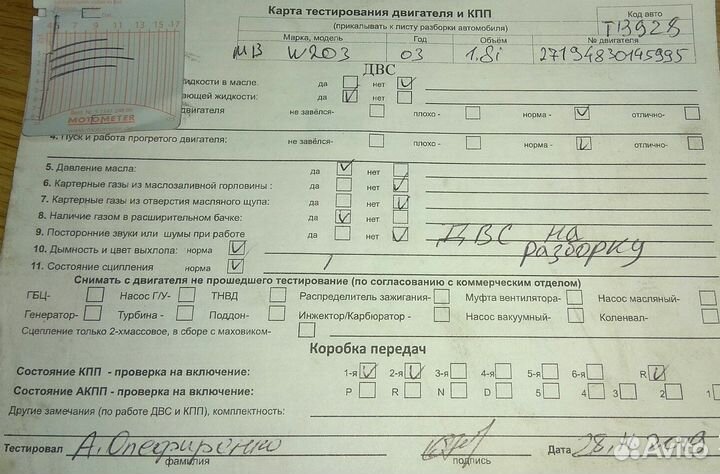 Карта тестирования двигателя и КПП
(прикалывать к листу разборки автомобиля)
Код авто
ТВ928
Марка, модель Год Объём № двигателя
МВ W203 03 1.8i 27194830145995
4 5 7 9 11 13 15 -17
MOTOMETER
ДВС
жидкости в масле. да нет
ающей жидкости: да нет
двигателя не завёлся- плохо - норма - отлично-
4. Пуск и работа прогретого двигателя: не завёлся- плохо - норма - отлично-
5. Давление масла: да нет
6. Картерные газы из маслозаливной горловины : да нет
7. Картерные газы из отверстия масляного щупа: да нет
8. Наличие газом в расширительном бачке: да нет
9. Посторонние звуки или шумы при работе да нет
ДВС на
разборку
10. Дымность и цвет выхлопа: норма
11. Состояние сцепления норма
Снимать с двигателя не прошедшего тестирование (по согласованию с коммерческим отделом)
ГБЦ- Насос Г/У- ТНВД Распределитель зажигания- Муфта вентилятора- Насос масляный-
Генератор- Турбина - Поддон- Инжектор/Карбюратор - Насос вакуумный- Коленвал-
Сцепление только 2-хмассовое, в сборе с маховиком-
Коробка передач
Состояние КПП - проверка на включение: 1-я 2-я 3-я 4-я 5-я 6-я R
Состояние АКПП - проверка на включение: P R N D 5 4 3 2 1
Другие замечания (по работе ДВС и КПП), комплектность:
Тестировал А. Опефиренко Дата 28.11.2019
фамилия подпись
Avito